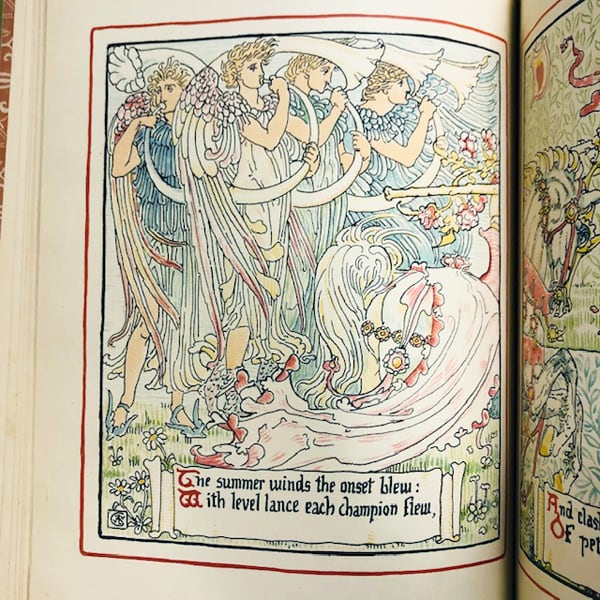 The summer winds the onset blew:
With level lance each champion flew,
And clas
Of pet